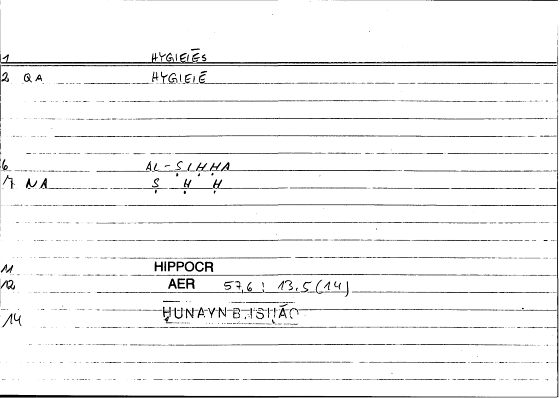 1 HYGIEIĒS
2 QA HYGIEIĒ
6 AL-ṢIḤḤA
7 NA Ṣ Ḥ Ḥ
11 HIPPOCR
12 AER 57,6 : 13,5 (14)
14 ḤUNAYN B.